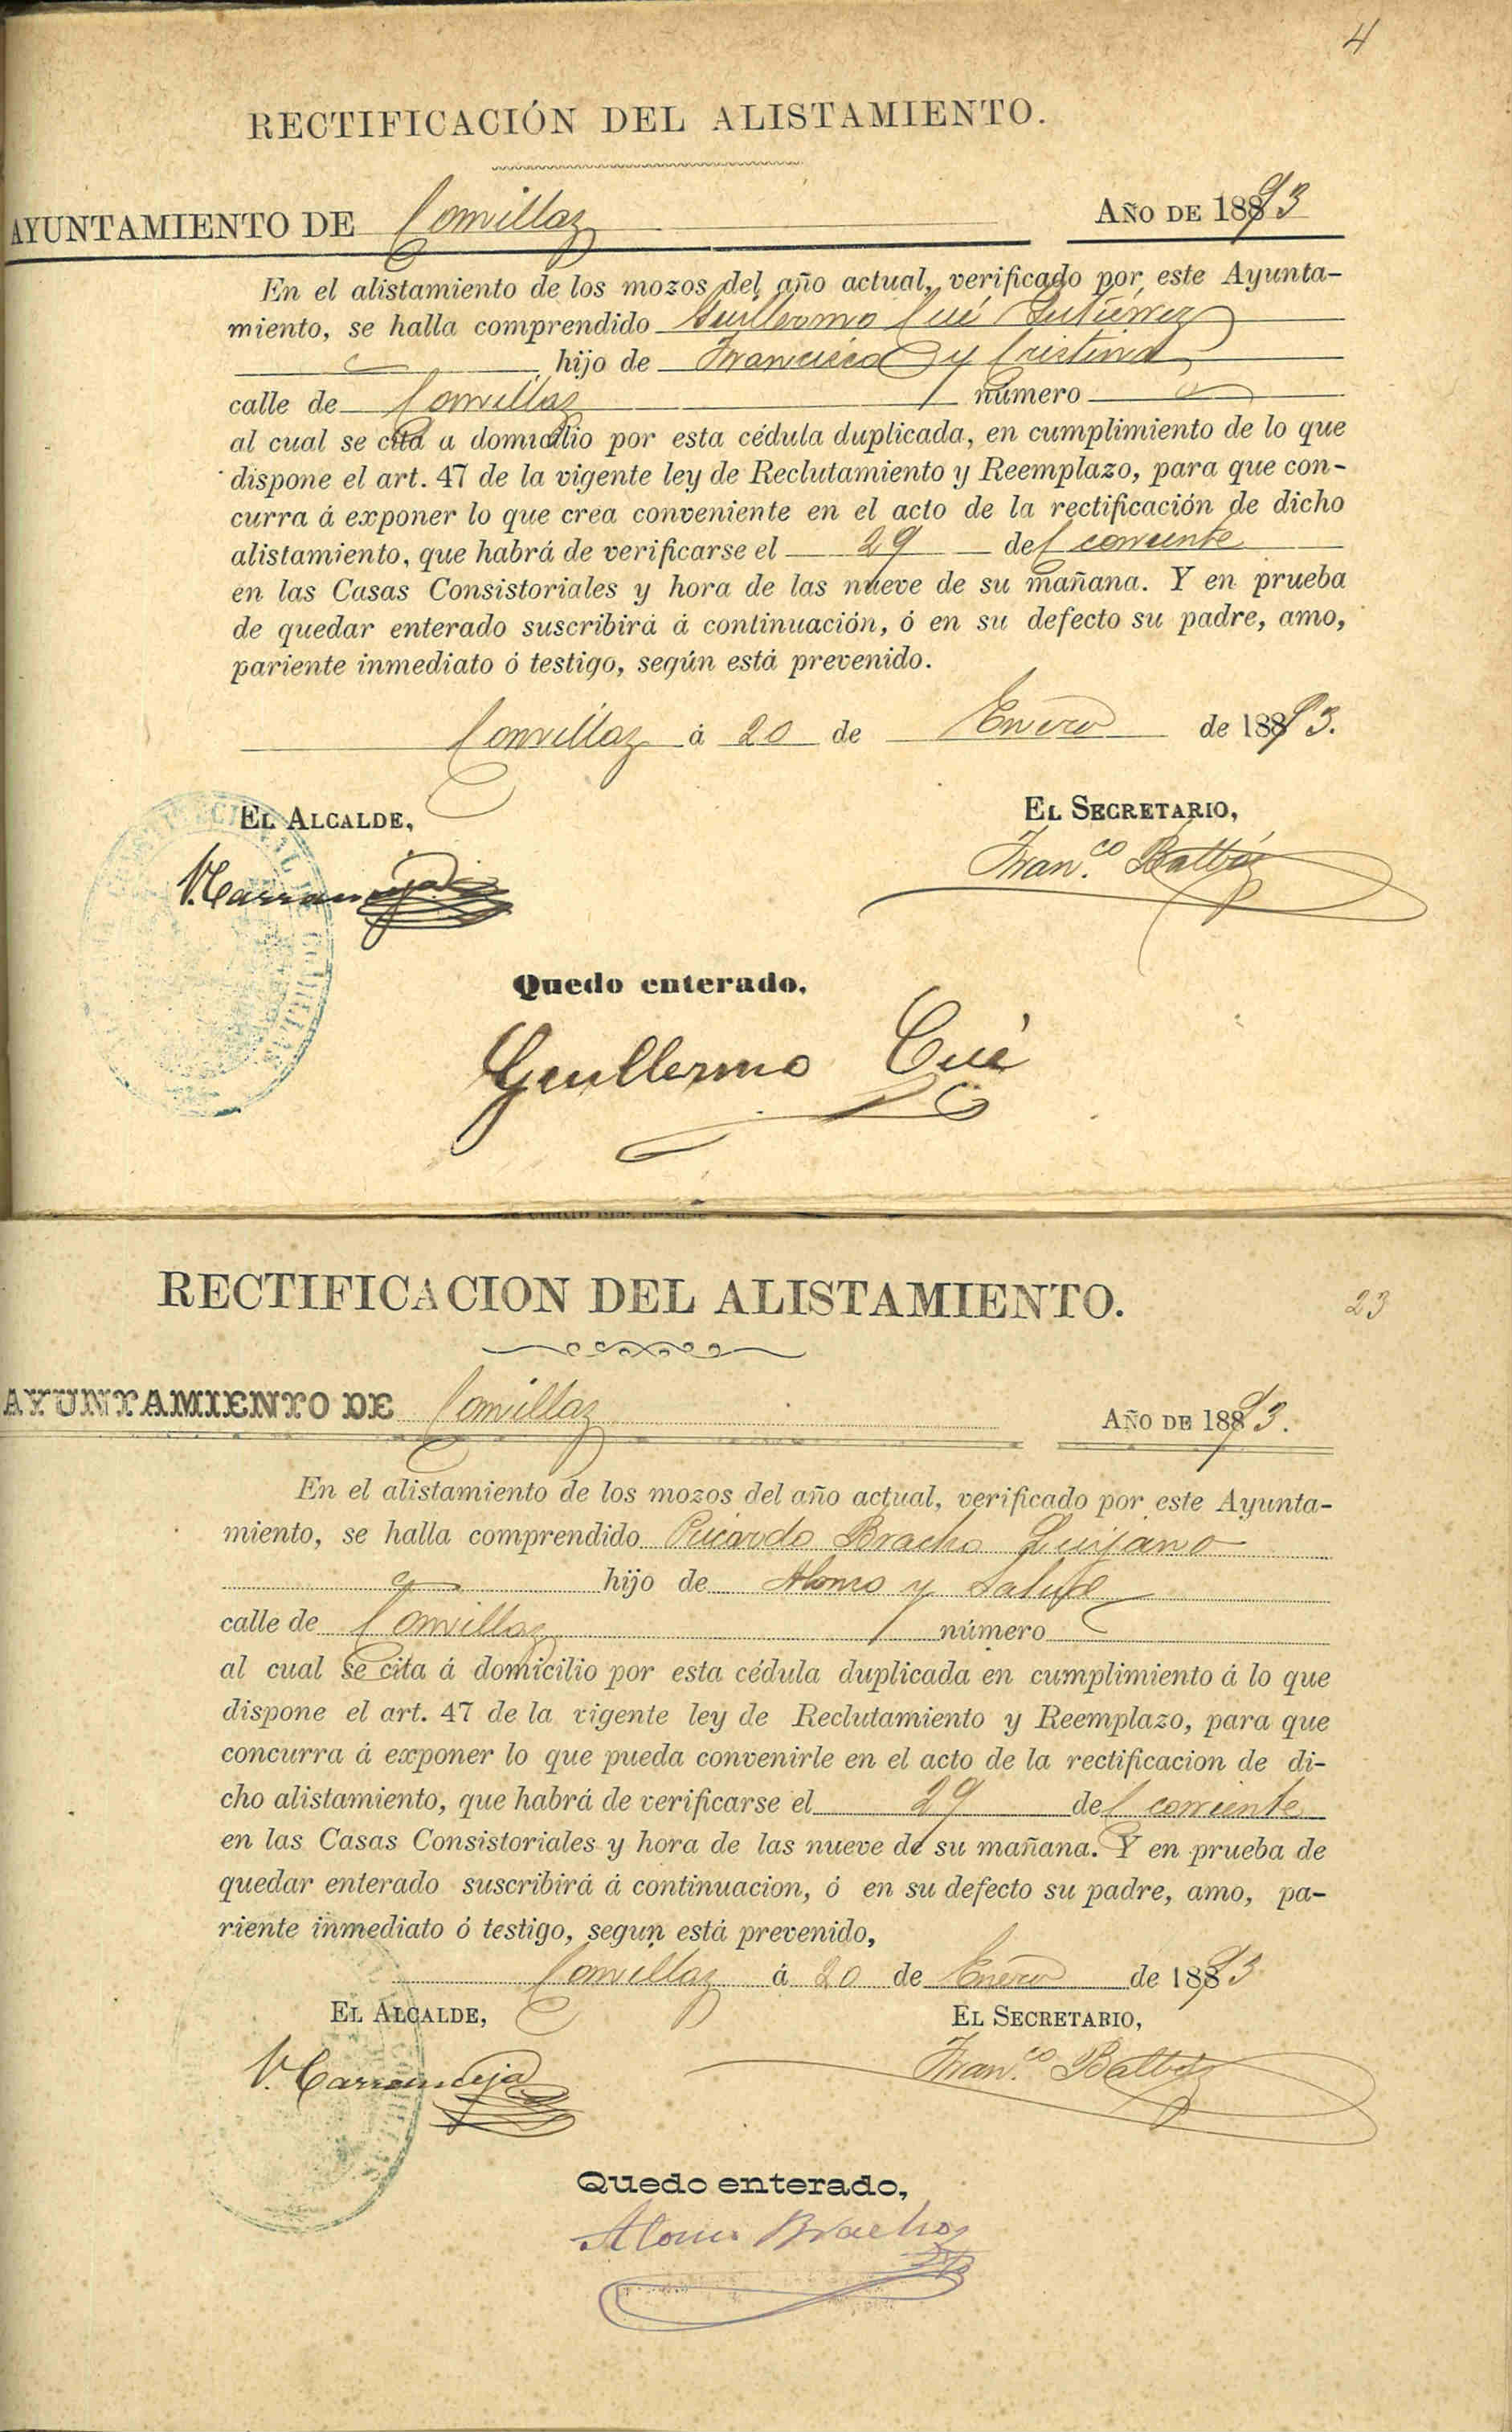 4
RECTIFICACIÓN DEL ALISTAMIENTO.
AYUNTAMIENTO DE Comillas AÑO DE 1893
En el alistamiento de los mozos del año actual, verificado por este Ayunta-
miento, se halla comprendido Guillermo Cué Gutiérrez
hijo de Francisco y Cristina
calle de Comillas número
al cual se cita a domicilio por esta cédula duplicada, en cumplimiento de lo que
dispone el art. 47 de la vigente ley de Reclutamiento y Reemplazo, para que con-
curra á exponer lo que crea conveniente en el acto de la rectificación de dicho
alistamiento, que habrá de verificarse el 29 del corriente
en las Casas Consistoriales y hora de las nueve de su mañana. Y en prueba
de quedar enterado suscribirá á continuación, ó en su defecto su padre, amo,
pariente inmediato ó testigo, según está prevenido.
Comillas á 20 de Enero de 1893.
EL ALCALDE, EL SECRETARIO,
Fran.co
Quedo enterado.
Guillermo Cué
RECTIFICACION DEL ALISTAMIENTO.
23
AYUNTAMIENTO DE Comillas AÑO DE 1893.
En el alistamiento de los mozos del año actual, verificado por este Ayunta-
miento, se halla comprendido Ricardo Bracho Quijano
hijo de Alonso y
calle de Comillas número
al cual se cita á domicilio por esta cédula duplicada en cumplimiento á lo que
dispone el art. 47 de la vigente ley de Reclutamiento y Reemplazo, para que
concurra á exponer lo que pueda convenirle en el acto de la rectificacion de di-
cho alistamiento, que habrá de verificarse el 29 del corriente
en las Casas Consistoriales y hora de las nueve de su mañana. Y en prueba de
quedar enterado suscribirá á continuacion, ó en su defecto su padre, amo, pa-
riente inmediato ó testigo, segun está prevenido,
Comillas á 20 de Enero de 1893
EL ALCALDE, EL SECRETARIO,
Fran.co
Quedo enterado,
Bracho